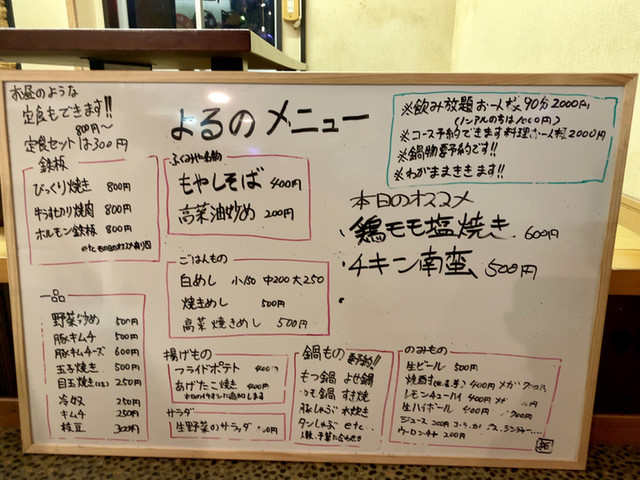 お昼のような
定食もできます!!
800円〜
定食セットは300円
よるのメニュー
※飲み放題 お一人様 90分 2000円
(ノンアルのちは1000円)
※コース予約できます 料理お一人様 2000円
※鍋物要予約です!!
※わがままききます!!
鉄板
びっくり焼き 800円
牛うすぎり焼肉 800円
ホルモン鉄板 800円
ふくみや名物
もやしそば 400円
高菜油炒め 200円
本日のオススメ
・鶏モモ塩焼き 600円
・チキン南蛮 500円
・
ごはんもの
白めし 小150 中200 大250
焼きめし 500円
高菜焼きめし 500円
一品
野菜炒め 500円
豚キムチ 500円
豚キムチーズ 600円
玉子焼き 500円
目玉焼き 250円
冷奴 250円
キムチ 250円
枝豆 300円
揚げもの
フライドポテト 400円
あげたこ焼き 400円
サラダ
生野菜のサラダ
鍋もの 要予約!!
もつ鍋 よせ鍋
すき焼
豚しゃぶ 水炊き
タンしゃぶ etc
のみもの
生ビール 500円
焼酎 400円 メガ
レモンチューハイ 400円 メガ
生ハイボール 400円
ジュース 200円
ウーロンチャ 200円